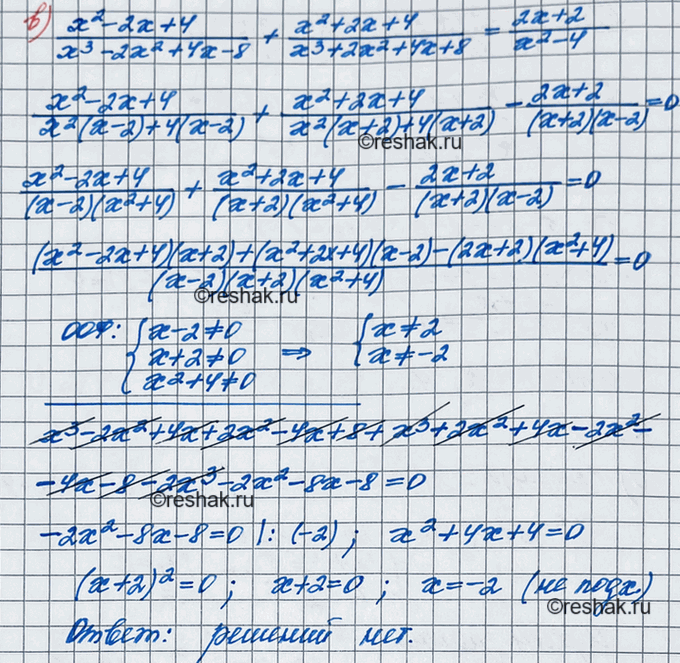 в) (x²-2x+4)/(x³-2x²+4x-8) + (x²+2x+4)/(x³+2x²+4x+8) = (2x+2)/(x²-4)
(x²-2x+4)/(x²(x-2)+4(x-2)) + (x²+2x+4)/(x²(x+2)+4(x+2)) - (2x+2)/((x+2)(x-2)) = 0
©reshak.ru
(x²-2x+4)/((x-2)(x²+4)) + (x²+2x+4)/((x+2)(x²+4)) - (2x+2)/((x+2)(x-2)) = 0
((x²-2x+4)(x+2)+(x²+2x+4)(x-2)-(2x+2)(x²+4))/((x-2)(x+2)(x²+4)) = 0
©reshak.ru
ООФ: { x-2≠0 { x≠2
x+2≠0 ⇒ x≠-2
x²+4≠0
x³-2x²+4x+2x²-4x+8+x³+2x²+4x-2x²-
-4x-8-2x³-2x²-8x-8=0
©reshak.ru
-2x²-8x-8=0 |: (-2) ; x²+4x+4=0
(x+2)²=0 ; x+2=0 ; x=-2 (не подх.)
©reshak.ru
Ответ: решений нет.